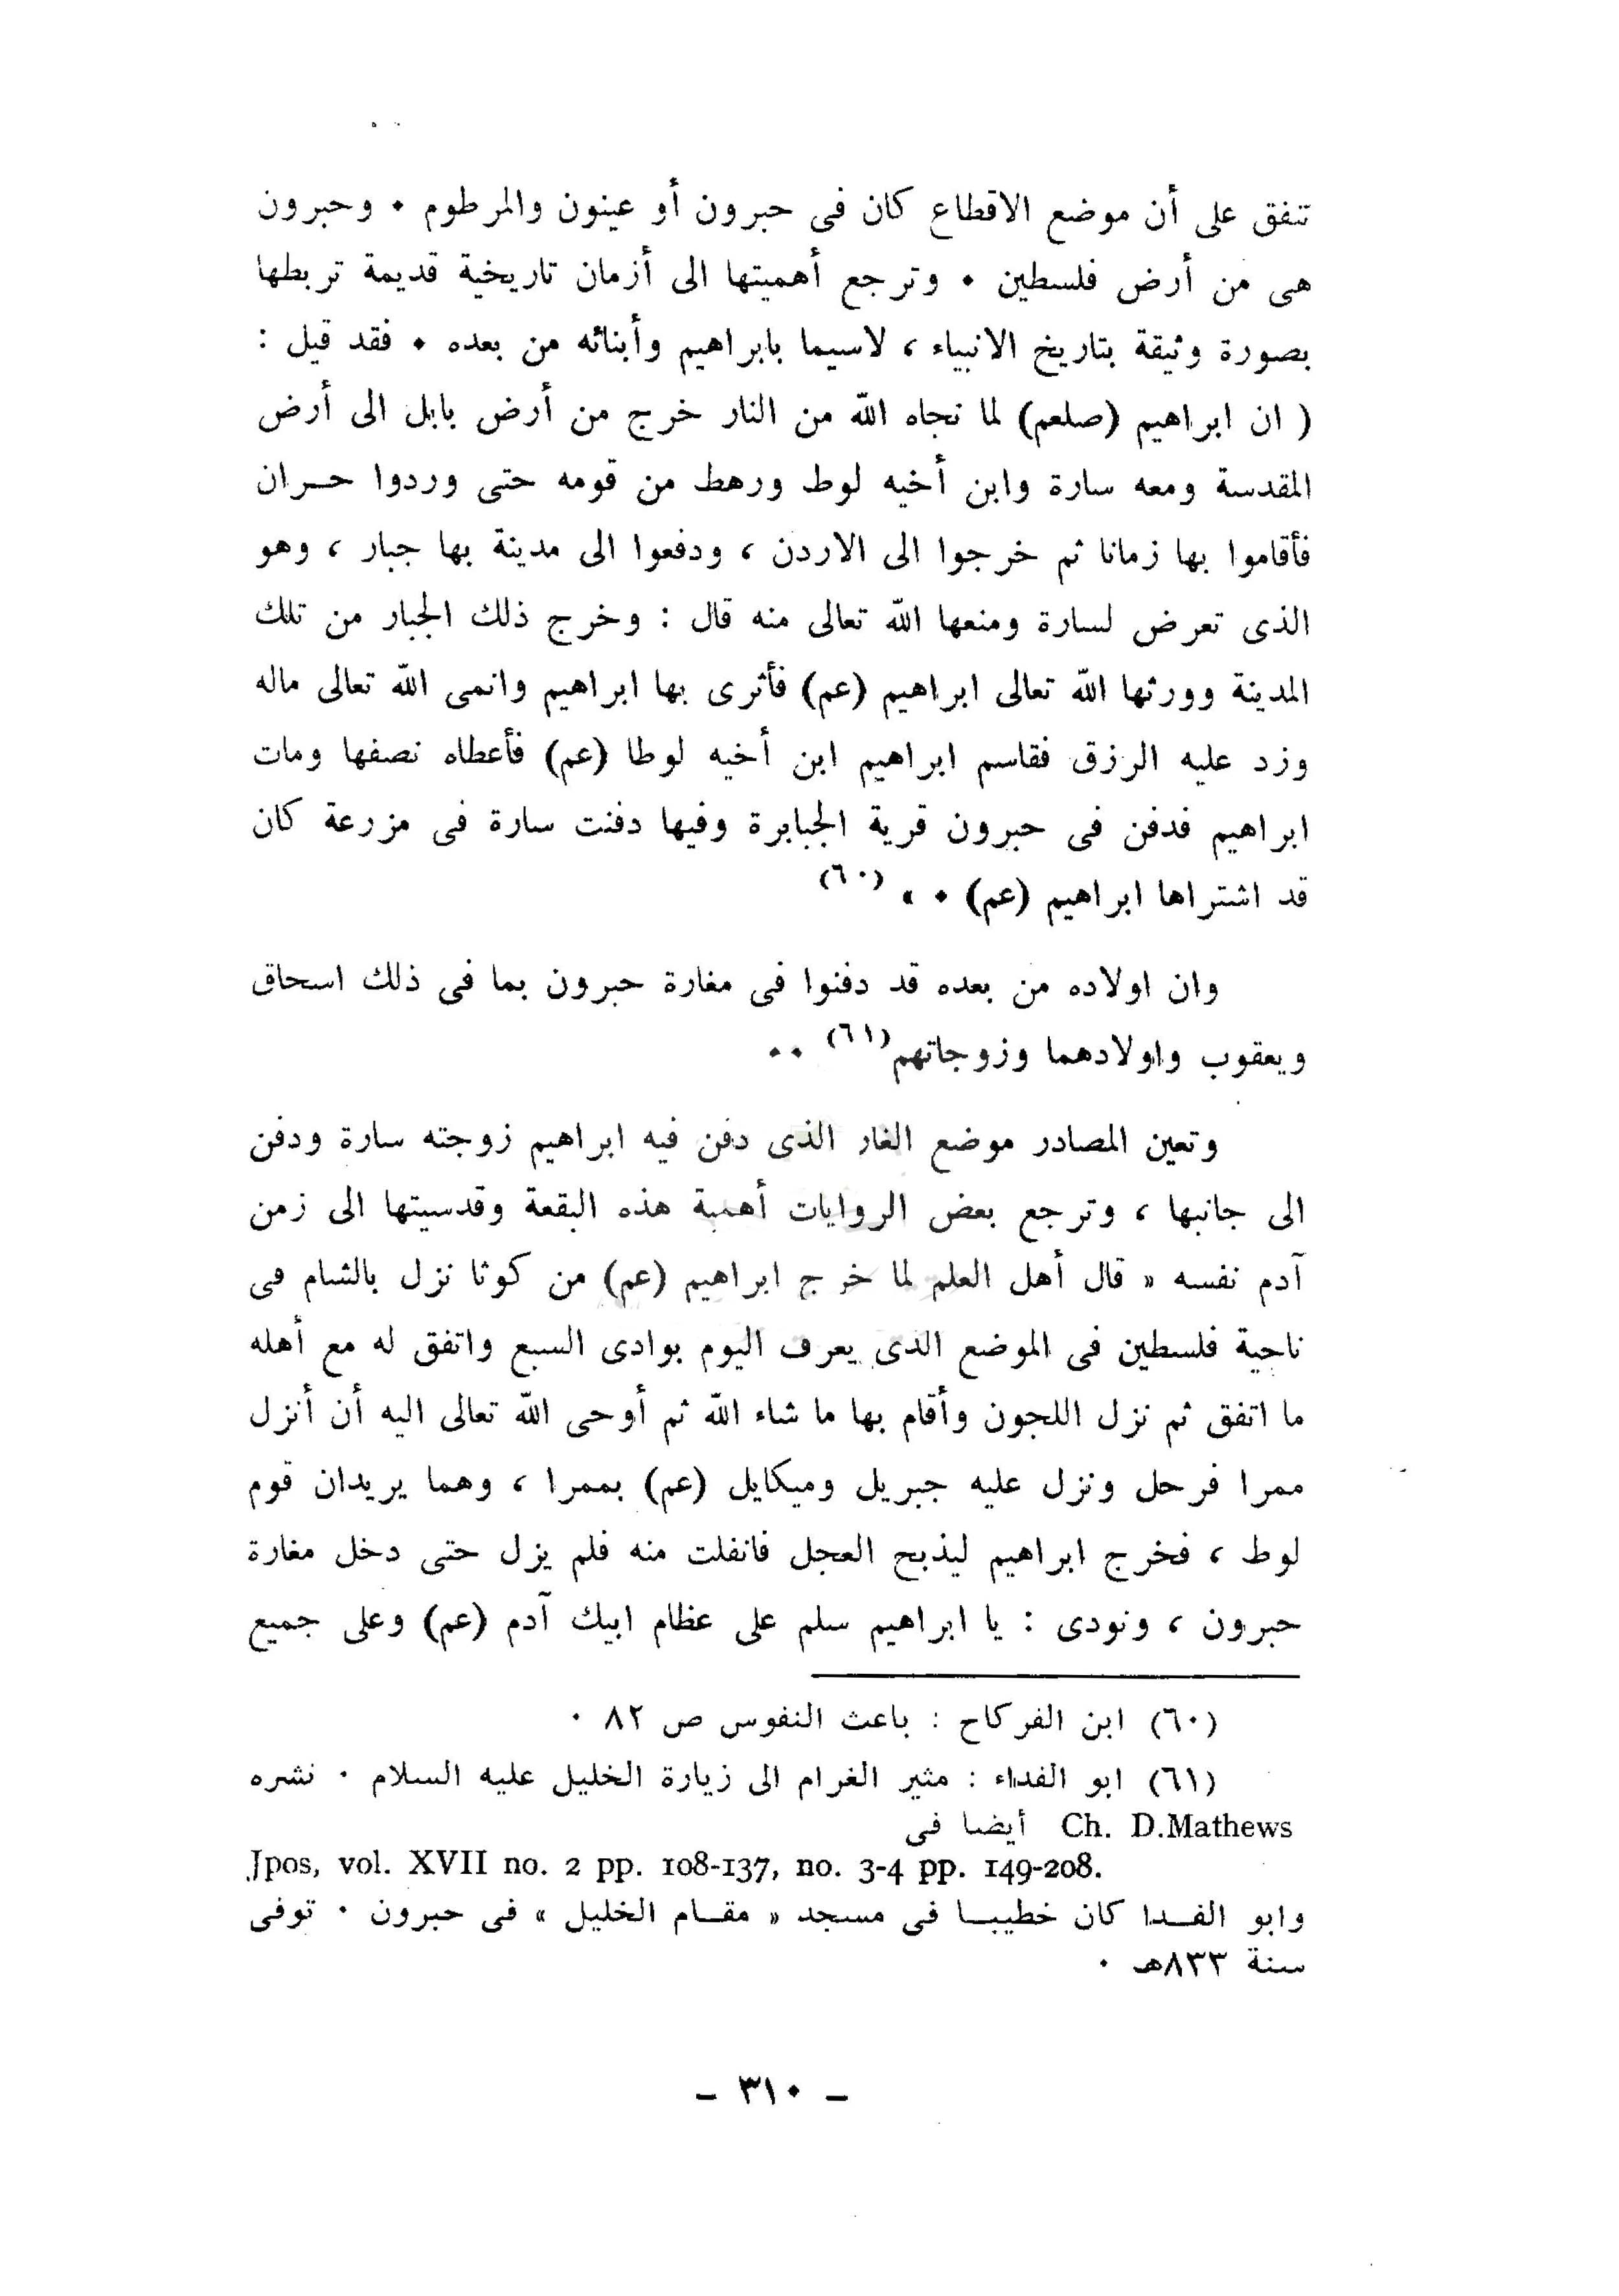 تتفق على أن موضع الاقطاع كان فى حبرون أو عينون والمرطوم • وحبرون
هى من أرض فلسطين • وترجع أهميتها الى أزمان تاريخية قديمة تربطها
بصورة وثيقة بتاريخ الانبياء ، لاسيما بابراهيم وأبنائه من بعده • فقد قيل :
( ان ابراهيم (صلعم) لما نجاه الله من النار خرج من أرض بابل الى أرض
المقدسة ومعه سارة وابن أخيه لوط ورهط من قومه حتى وردوا حـران
فأقاموا بها زمانا ثم خرجوا الى الاردن ، ودفعوا الى مدينة بها جبار ، وهو
الذى تعرض لسارة ومنعها الله تعالى منه قال : وخرج ذلك الجبار من تلك
المدينة وورثها الله تعالى ابراهيم (عم) فأثرى بها ابراهيم وانمى الله تعالى ماله
وزد عليه الرزق فقاسم ابراهيم ابن أخيه لوطا (عم) فأعطاه نصفها ومات
ابراهيم فدفن فى حبرون قرية الجبابرة وفيها دفنت سارة فى مزرعة كان
قد اشتراها ابراهيم (عم) • » (٦٠)
وان اولاده من بعده قد دفنوا فى مغارة حبرون بما فى ذلك اسحاق
ويعقوب واولادهما وزوجاتهم(٦١) ••
وتعين المصادر موضع الغار الذى دفن فيه ابراهيم زوجته سارة ودفن
الى جانبها ، وترجع بعض الروايات أهمية هذه البقعة وقدسيتها الى زمن
آدم نفسه « قال أهل العلم لما خرج ابراهيم (عم) من كوثا نزل بالشام فى
ناحية فلسطين فى الموضع الذى يعرف اليوم بوادى السبع واتفق له مع أهله
ما اتفق ثم نزل اللجون وأقام بها ما شاء الله ثم أوحى الله تعالى اليه أن أنزل
ممرا فرحل ونزل عليه جبريل وميكايل (عم) بممرا ، وهما يريدان قوم
لوط ، فخرج ابراهيم ليذبح العجل فانفلت منه فلم يزل حتى دخل مغارة
حبرون ، ونودى : يا ابراهيم سلم على عظام ابيك آدم (عم) وعلى جميع
(٦٠) ابن الفركاح : باعث النفوس ص ٨٢ •
(٦١) ابو الفداء : مثير الغرام الى زيارة الخليل عليه السلام • نشره
Ch. D.Mathews أيضا فى
Jpos, vol. XVII no. 2 pp. 108-137, no. 3-4 pp. 149-208.
وابو الفـدا كان خطيبـا فى مسجد « مقـام الخليل » فى حبرون • توفى
سنة ٨٣٣هـ •
– ٣١٠ –